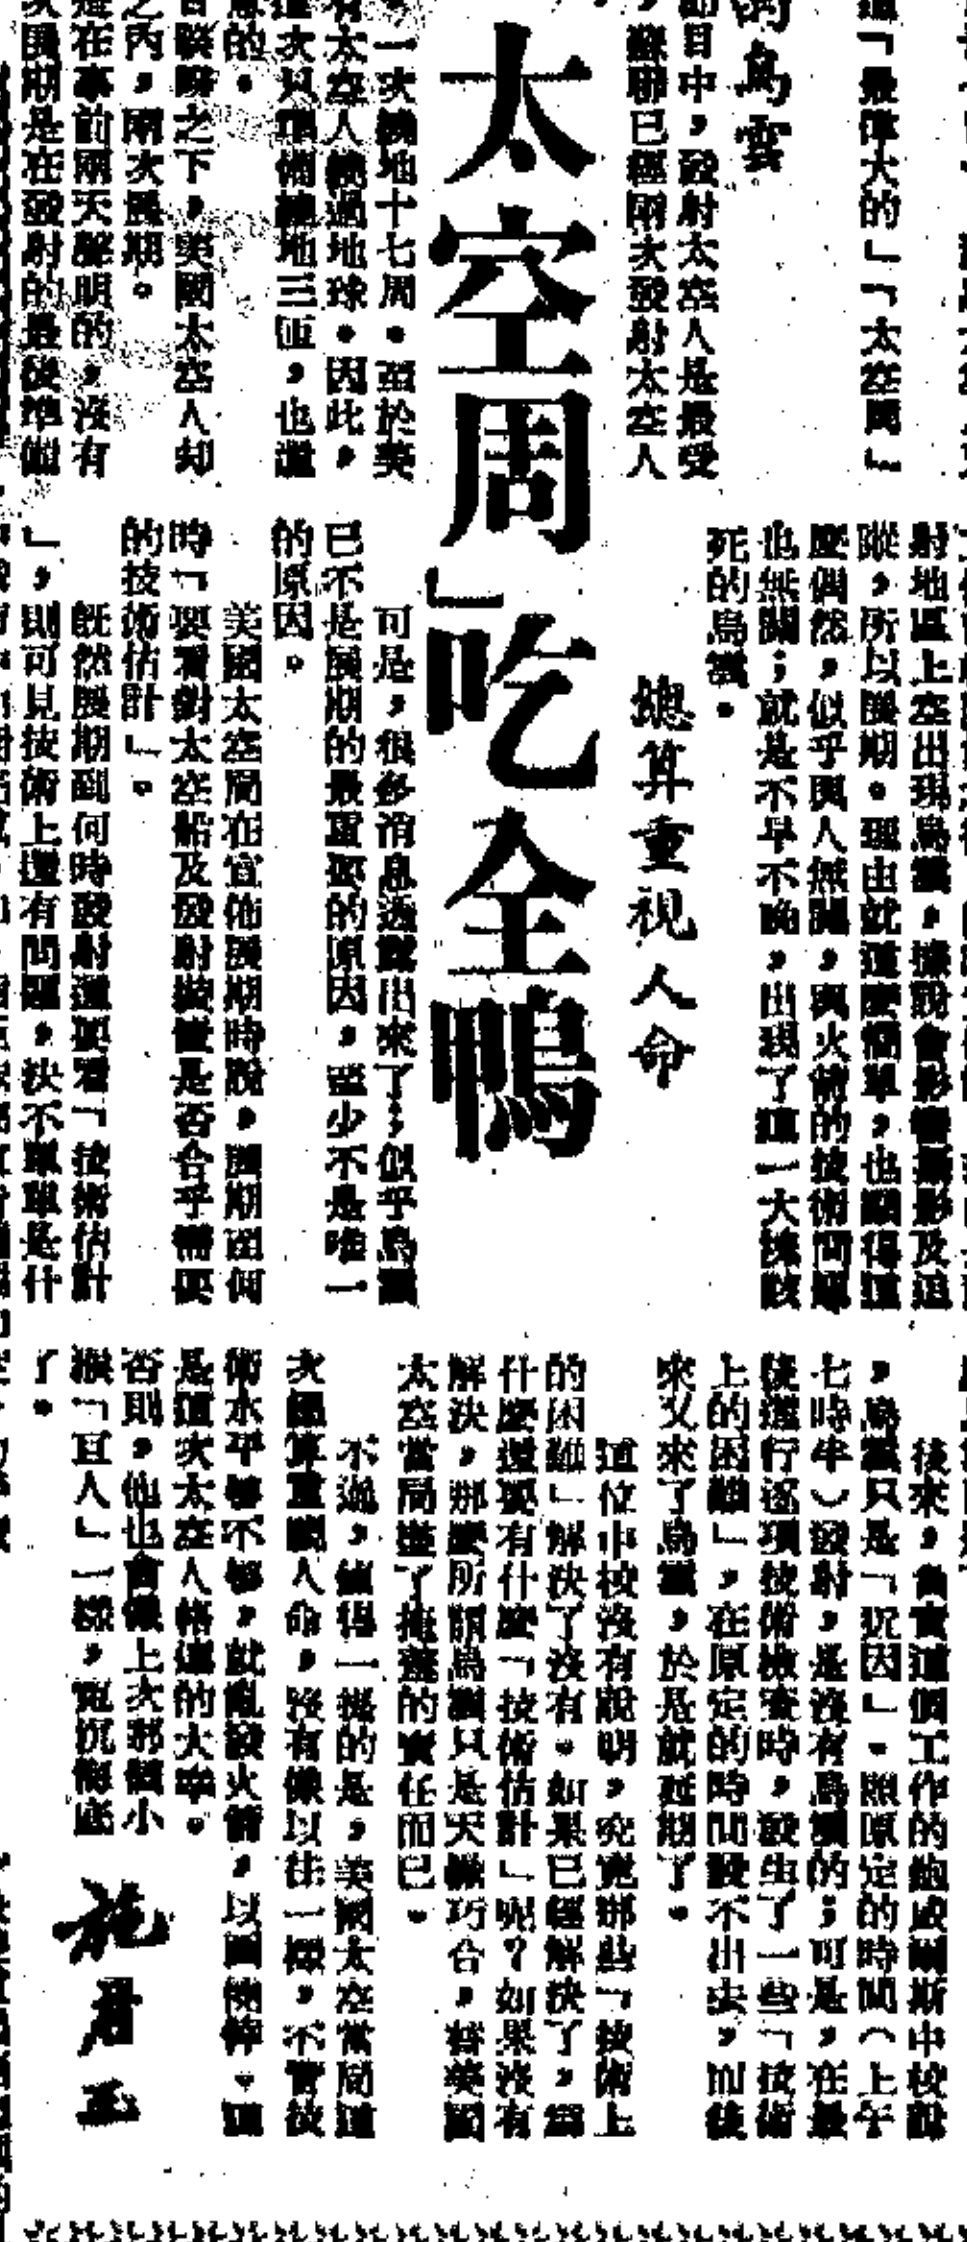 這「最偉大的」「太空周」
的烏雲
節目中，發射太空人是最受
，蘇聯已經兩次發射太空人
太空周」吃全鴨
。一次繞地十七周。至於美
有太空人繞過地球。因此，
這次只準備繞地三匝，也還
的。
睽睽之下，美國太空人却
之內，兩次展期。
是在事前兩天聲明的，沒有
次展期是在發射的最後準備
射地區上空出現烏雲，據說會影響攝影及追
蹤，所以展期。理由就這麼簡單，也顯得這
麼偶然，似乎與人無關，與火箭的技術問題
也無關；就是不早不晚，出現了這一大塊該
死的烏雲。
總算重視人命
可是，很多消息透露出來了，似乎烏雲
已不是展期的最重要的原因，至少不是唯一
的原因。
美國太空局在宣佈展期時說，展期至何
時「要看對太空船及發射裝置是否合乎需要
的技術估計」。
既然展期到何時發射還要看「技術估計
」，則可見技術上還有問題，決不單單是什
後來，負責這個工作的鮑威爾斯中校說
，烏雲只是「近因」。照原定的時間（上午
七時半）發射，是沒有烏雲的；可是，在最
後進行逐項技術檢查時，發生了一些「技術
上的困難」，在原定的時間發不出去，而後
來又來了烏雲，於是就延期了。
這位中校沒有說明，究竟那些「技術上
的困難」解決了沒有。如果已經解決了，爲
什麼還要有什麼「技術估計」呢？如果沒有
解決，那麼所謂烏雲只是天機巧合，替美國
太空當局盡了掩護的責任而已。
不過，值得一提的是，美國太空當局這
次總算重視人命，沒有像以往一樣，不管技
術水平夠不夠，就亂發火箭，以圖僥倖。這
是這次太空人格連的大幸。
否則，他也會像上次那個小
猴「巨人」一樣，寃沉海底
了。
施君玉